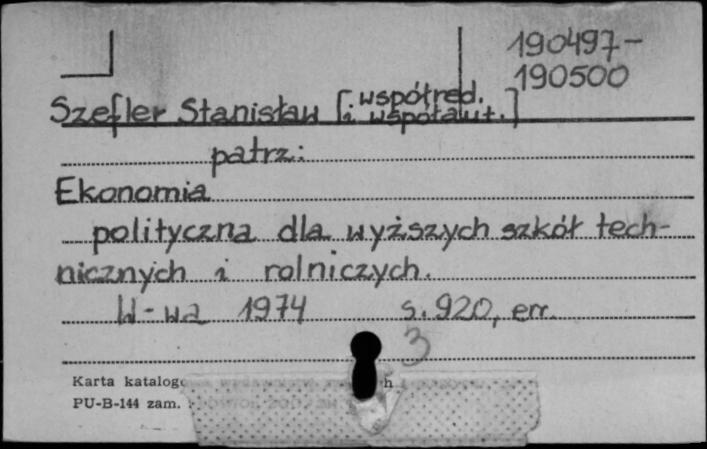 190497-
190500
Szefler Stanisław [współred.
i współaut.]
patrz:
Ekonomia
polityczna dla wyższych szkół tech-
nicznych i rolniczych.
W-wa 1974 s. 920, err.
3
Karta katalogo
PU-B-144 zam.